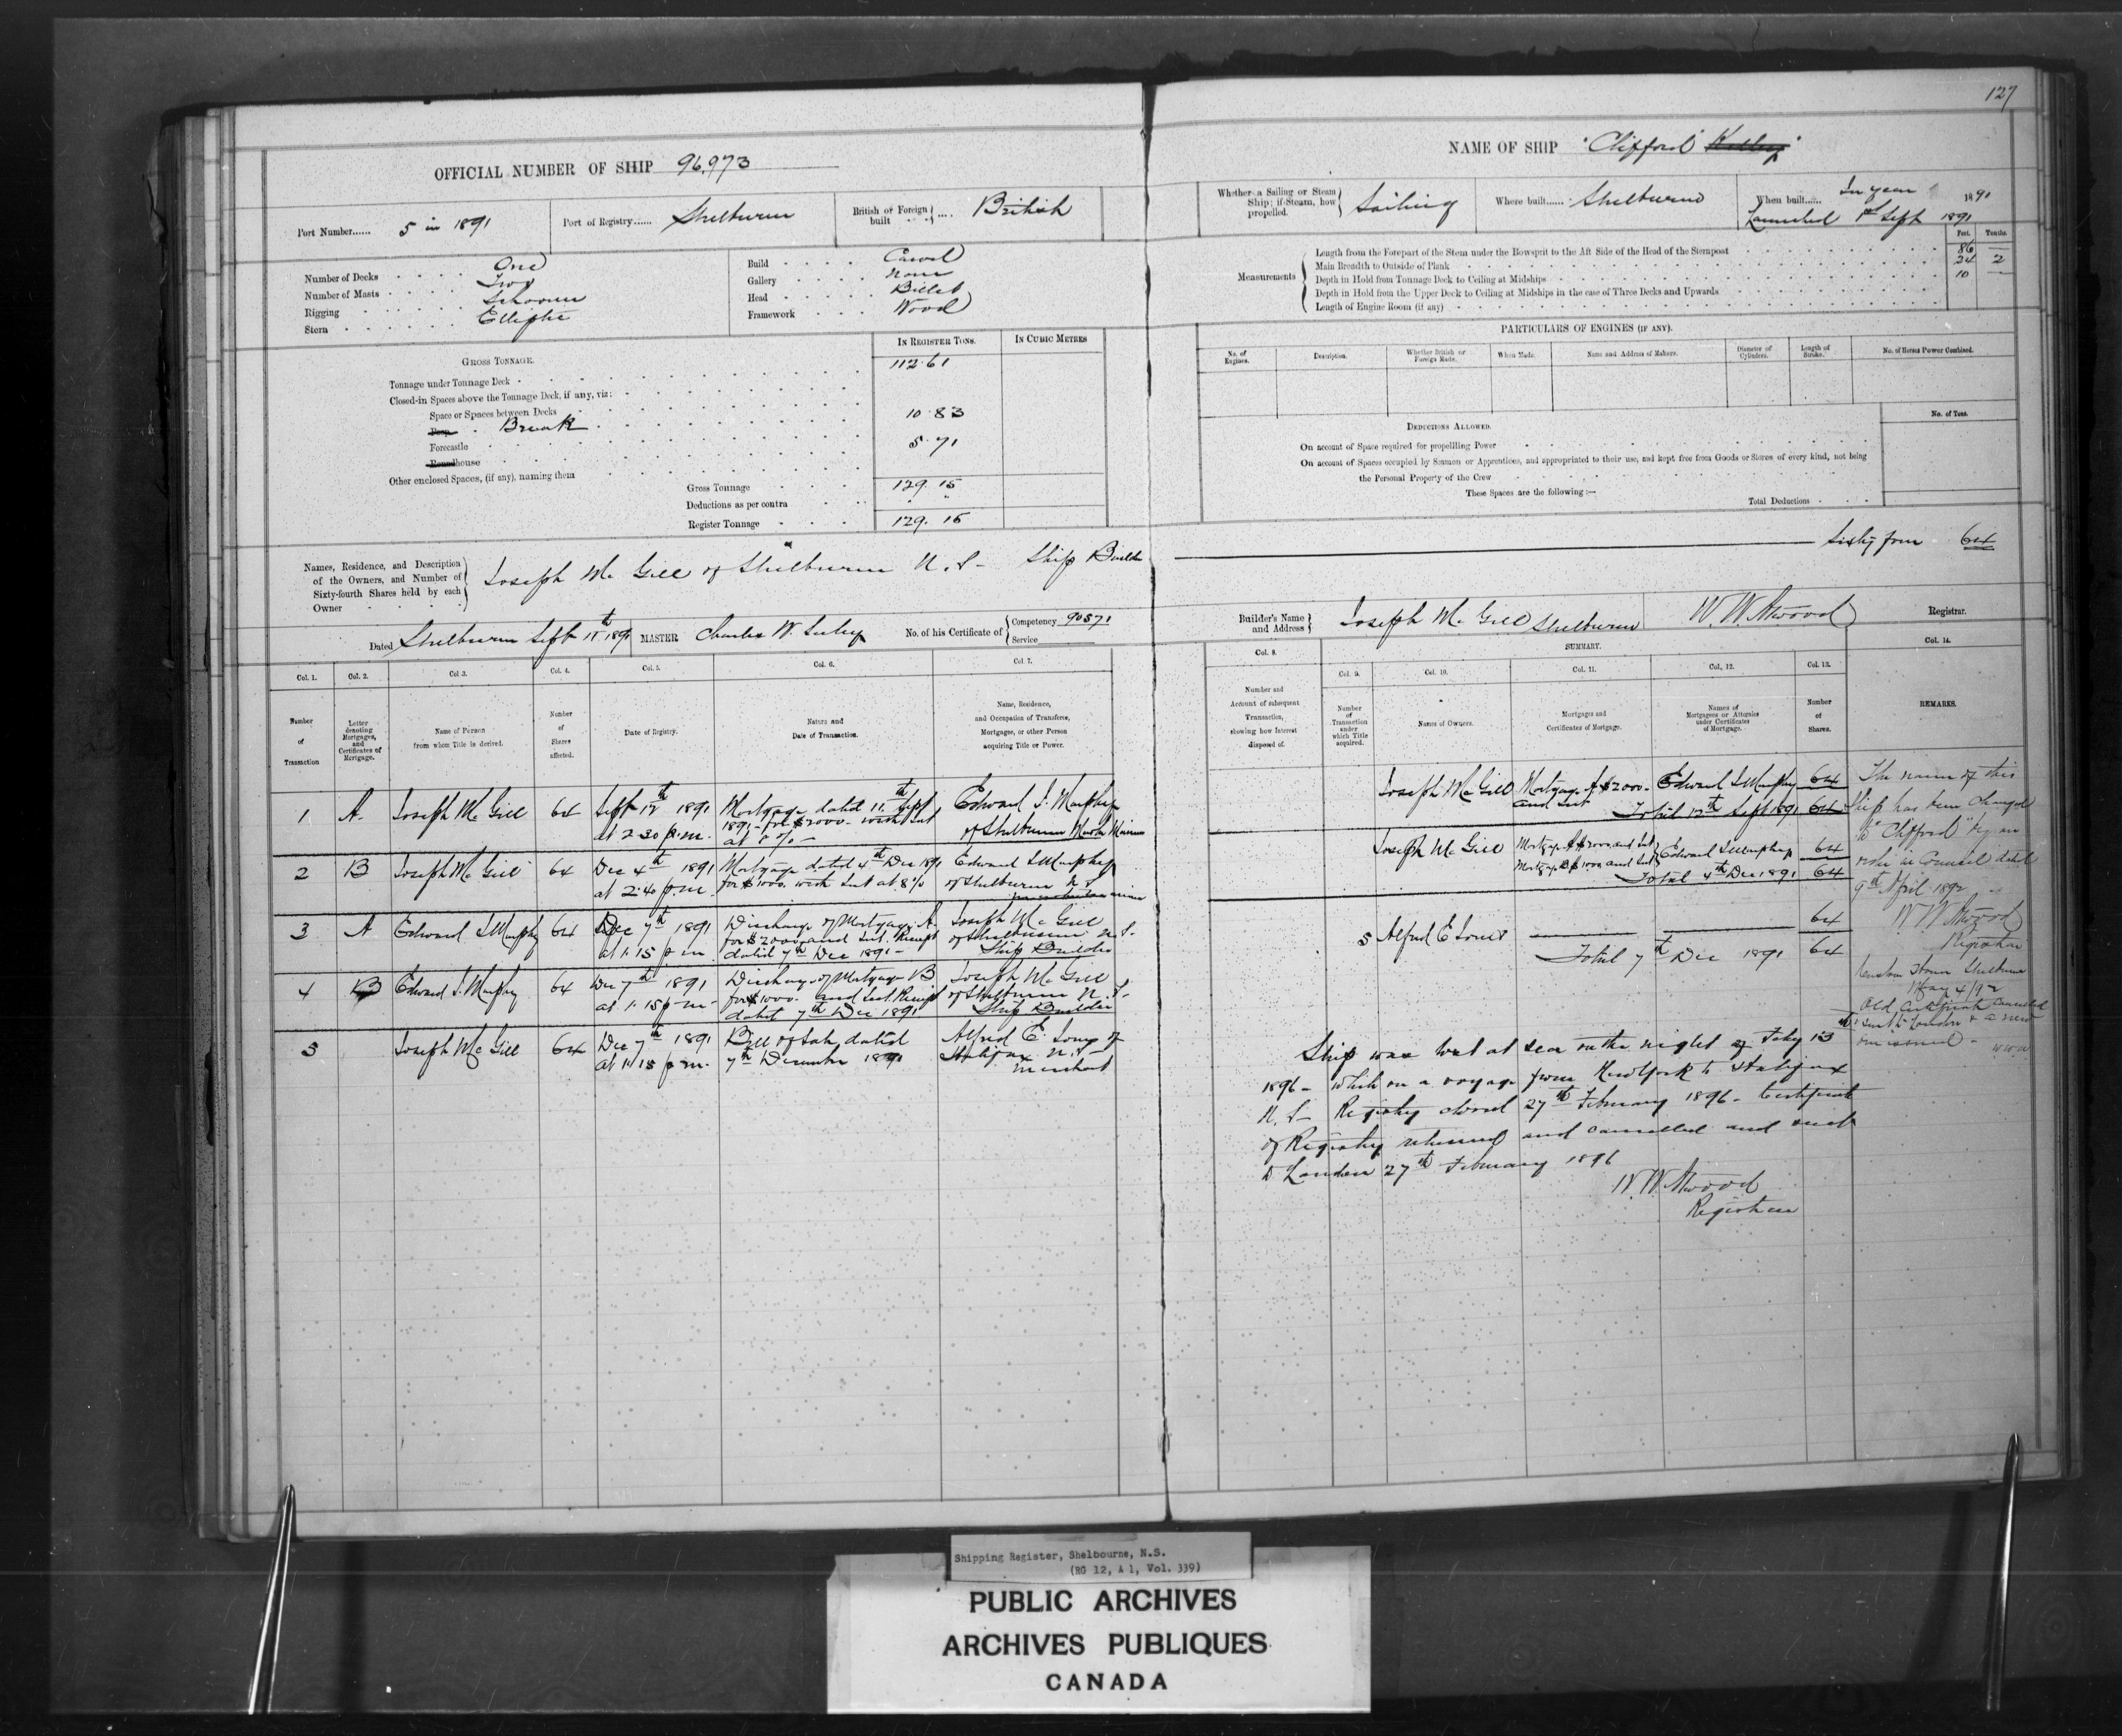 127
OFFICIAL NUMBER OF SHIP 96,973
NAME OF SHIP "Clifford"
Port Number...... 5 in 1891
Port of Registry...... Shelburne
British or Foreign built .... British
Whether a Sailing or Steam Ship; if Steam, how propelled. Sailing
Where built...... Shelburne
When built..... In year 1891
Launched 1st Sept 1891
Number of Decks One
Number of Masts Two
Rigging Schooner
Stern Elliptic
Build Carvel
Gallery None
Head Billet
Framework Wood
Measurements
Feet. Tenths.
Length from the Forepart of the Stem under the Bowsprit to the Aft Side of the Head of the Sternpost 86 —
Main Breadth to Outside of Plank 24 2
Depth in Hold from Tonnage Deck to Ceiling at Midships 10 —
Depth in Hold from the Upper Deck to Ceiling at Midships in the case of Three Decks and Upwards
Length of Engine Room (if any)
GROSS TONNAGE.
IN REGISTER TONS.
IN CUBIC METRES
Tonnage under Tonnage Deck 112.61
Closed-in Spaces above the Tonnage Deck, if any, viz:
Space or Spaces between Decks
Poop Break 10.83
Forecastle 5.71
Roundhouse
Other enclosed Spaces, (if any), naming them
Gross Tonnage 129.15
Deductions as per contra " "
Register Tonnage 129.15
PARTICULARS OF ENGINES (IF ANY).
No. of Engines.
Description.
Whether British or Foreign Made.
When Made.
Name and Address of Makers.
Diameter of Cylinders.
Length of Stroke.
No. of Horses Power Combined.
No. of Tons.
DEDUCTIONS ALLOWED.
On account of Space required for propellling Power
On account of Spaces occupied by Seamen or Apprentices, and appropriated to their use, and kept free from Goods or Stores of every kind, not being
the Personal Property of the Crew
These Spaces are the following:—
Total Deductions
Names, Residence, and Description of the Owners, and Number of Sixty-fourth Shares held by each Owner
Joseph McGill of Shelburne N.S. Ship Builder Sixty four 64
Dated Shelburne Sept 11th 1891
MASTER Charles W.
No. of his Certificate of Competency 90871
Service
Builder's Name and Address Joseph McGill Shelburne
W. W. Atwood Registrar.
Col. 1. Number of Transaction
Col. 2. Letter denoting Mortgages, and Certificates of Mortgage.
Col. 3. Name of Person from whom Title is derived.
Col. 4. Number of Shares affected.
Col. 5. Date of Registry.
Col. 6. Nature and Date of Transaction.
Col. 7. Name, Residence, and Occupation of Transferee, Mortgagee, or other Person acquiring Title or Power.
Col. 8. Number and Account of subsequent Transaction, showing how Interest disposed of.
SUMMARY.
Col. 9. Number of Transaction under which Title acquired.
Col. 10. Names of Owners.
Col. 11. Mortgages and Certificates of Mortgage.
Col. 12. Names of Mortgagees or Attornies under Certificates of Mortgage.
Col. 13. Number of Shares.
Col. 14. REMARKS.
1 A. Joseph McGill 64
Sept 12th 1891 at 2.30 p.m.
Mortgage dated 11th Sept 1891 for $2000 with Int at 8%
Edward S. Murphy of Shelburne Master Mariner
2 B Joseph McGill 64
Dec 4th 1891 at 2.40 p.m.
Mortgage dated 4th Dec 1891 for $1000. with Int at 8%
Edward S Murphy of Shelburne N S
3 A Edward S Murphy 64
Dec 7th 1891 at 1.15 p m.
Discharge of Mortgage A for $2000 and Int. Receipt dated 7th Dec 1891
Joseph McGill of Shelburne N.S. Ship Builder
4 B Edward S. Murphy 64
Dec 7th 1891 at 1.15 p.m.
Discharge of Mortgage B for $1000. and Int. Receipt dated 7th Dec 1891
Joseph McGill of Shelburne N.S. Ship Builder
5 Joseph McGill 64
Dec 7th 1891 at 1.15 p.m.
Bill of Sale dated 7th December 1891
Alfred E. Jones of Halifax N.S. Merchant
Joseph McGill Mortgage A $2000 and Int Edward S Murphy 64
Total 12th Sept 1891 64
Joseph McGill Mortgage A $2000 and Int
Mortgage B $1000 and Int Edward S Murphy 64
Total 4th Dec 1891 64
5 Alfred E Jones 64
Total 7th Dec 1891 64
The name of this
Ship has been changed
to "Clifford" by an
order in Council dated
9th April 1892
W W Atwood
Registrar
Custom House Shelburne
May 4/92
Old Certificate cancelled
sent to London & a new
one issued - WWA
Ship was lost at sea on the night of Feby 13th
1896 - while on a voyage from New York to Halifax
N.S - Registry closed 27th February 1896 - Certificate
of Registry returned and cancelled and sent
to London 27th February 1896
W. W. Atwood
Registrar
Shipping Register, Shelbourne, N.S.
(RG 12, A 1, Vol. 339)
PUBLIC ARCHIVES
ARCHIVES PUBLIQUES
CANADA